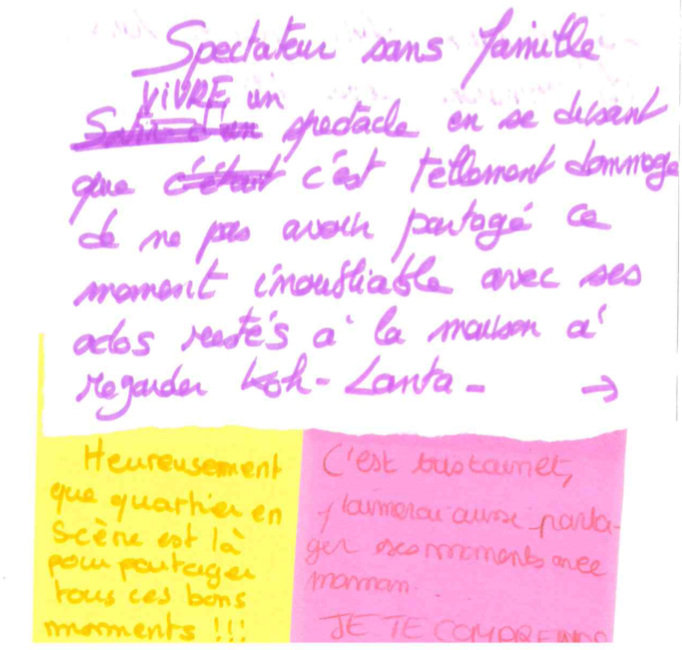 Spectateur sans famille
VIVRE un
Sortir d'un spectacle en se disant
que c'était c'est tellement dommage
de ne pas avoir partagé ce
moment inoubliable avec ses
ados restés à la maison à
regarder Koh-Lanta - →
Heureusement
que quartier en
scène est là
pour partager
tous ces bons
moments !!!
C'est
j'aimerai aussi parta-
ger ces moments avec
maman.
JE TE COMPRENDS